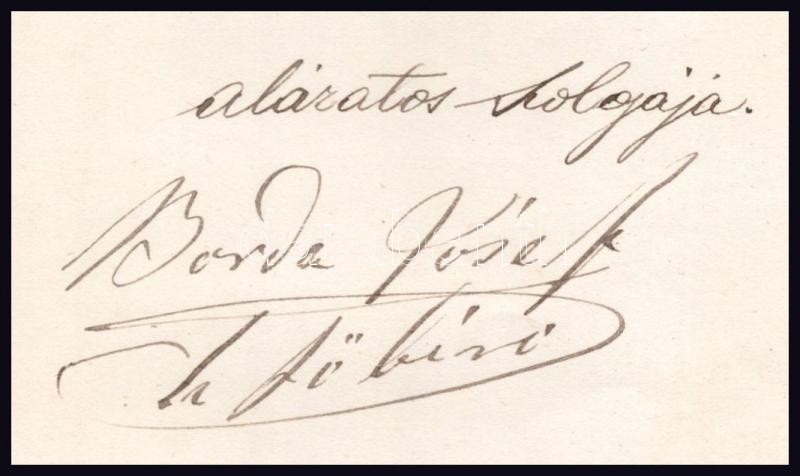 alázatos szolgája.
Borda József
h főbiró